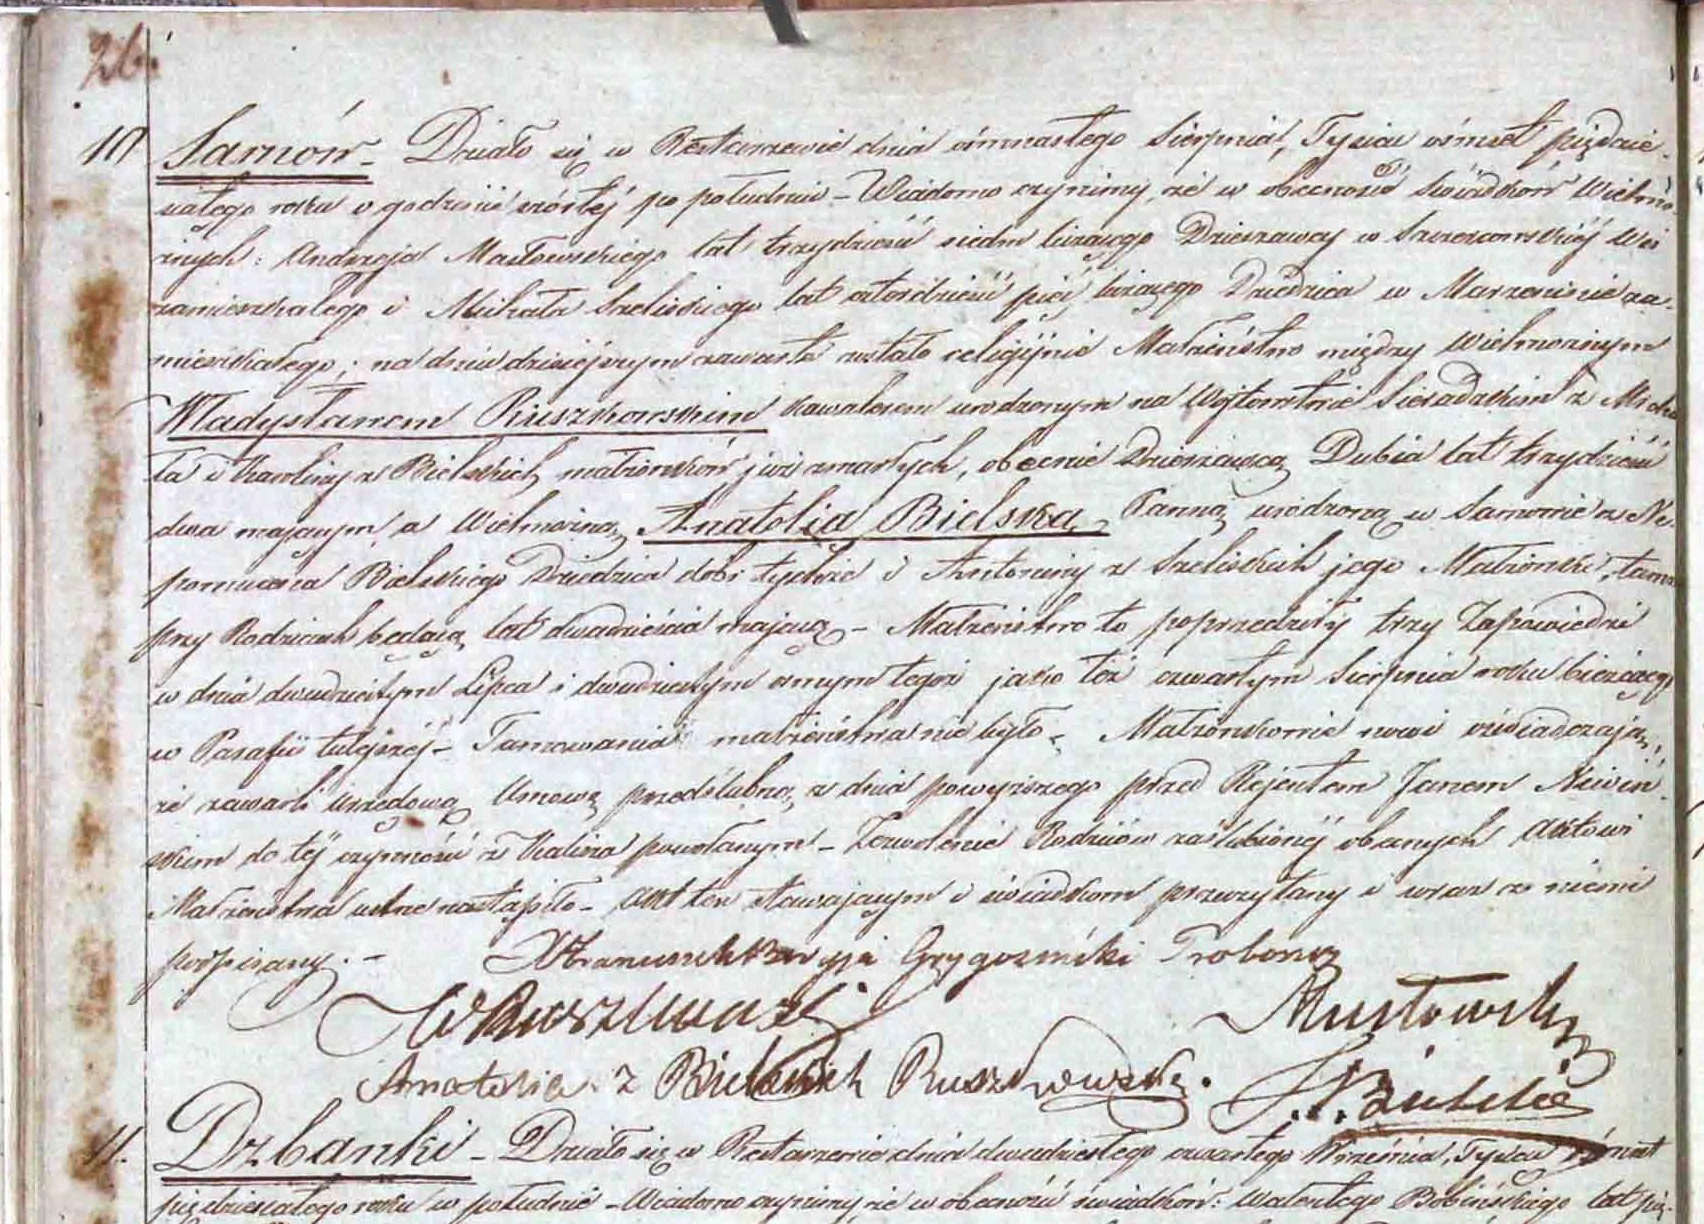 26.
10 Sarnów. Działo się w Restarzewie dnia ósmnastego Sierpnia, Tysiac ośmset pięćdzie-
siątego roku o godzinie szóstej po południu – Wiadomo czyniemy, że w obecności świadków Wielmo-
żnych: Andrzeja Masłowskiego lat trzydzieści siedm liczącego Dzierzawcy w Wsi
zamieszkałego i Michała Szeliskiego lat czterdzieści pięć liczącego Dziedzica w Marzeninie za-
mieszkałego; na dniu dzisiejszym zawarte zostało religijnie Małżeństwo między Wielmożnym
Władysławem Ruszkowskim kawalerem urodzonym na Wójtostwie Sieradzkim z Micha
ła i Karoliny z Bielskich małżonków już zmarłych, obecnie Dzierzawcą Dubia lat trzydzieści
dwa mającym, a Wielmożną Anatolią Bielską, Panną urodzoną w Sarnowie z Ne-
pomucena Bielskiego Dziedzica dóbr tychże i Antoniny z Szeliskich jego Małżonki, tamże
przy Rodzicach będącą lat dwadzieścia mającą – Małżeństwo to poprzedziły trzy Zapowiedzi
w dniu dwudziestym Lipca i dwudziestym ósmym tegoż jako też czwartym Sierpnia roku bieżącego
w Parafii tutejszej – Tamowania małżeństwa nie było. Małżonkowie nowi oświadczają,
że zawarli urzędową Umowę przedślubną z dnia powyższego przed Rejentem Janem Niwiń-
skim do tej czynności z Kalisza powołanym – Zezwolenie Rodziców zaślubionej obecnych Aktowi
Małżeństwa ustne nastąpiło – Akt ten stawającym i świadkom przeczytany i wraz z niemi
podpisany. –
WRuszkowski Masłowski
Anatolia z Bielskich Ruszkowska.
11. Dzbanki – Działo się w Restarzewie dnia dwudziestego czwartego Września, Tysiac ośmset
pięćdziesiątego roku w południe – Wiadomo czyniemy, że w obecności świadków: Walentego Bobińskiego lat pię-